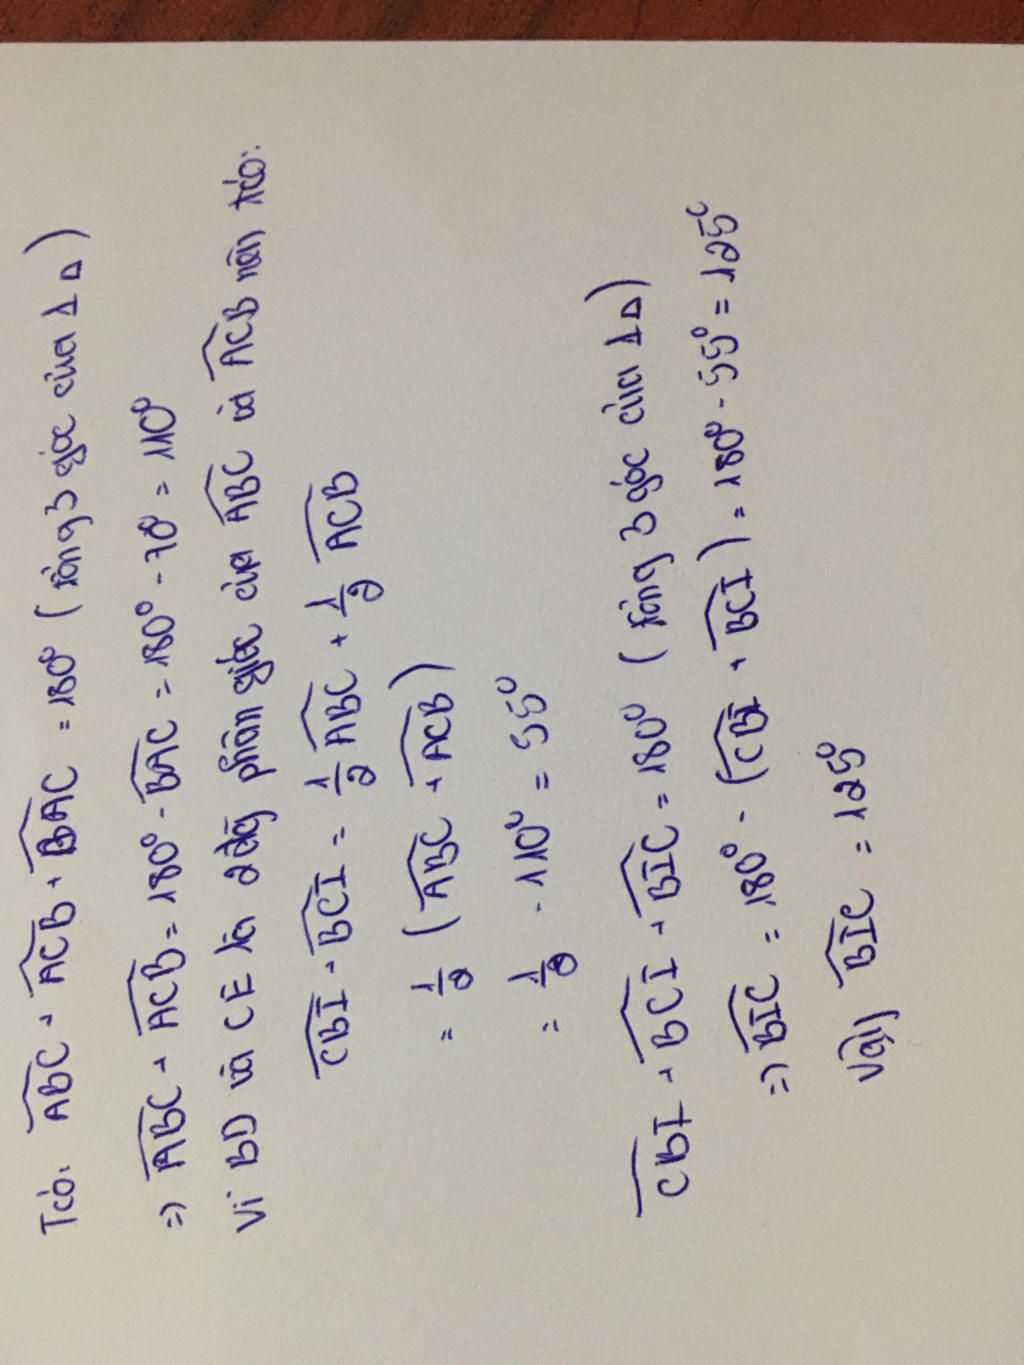 Tcó: ABC + ACB + BAC = 180° (tổng 3 góc của 1 Δ)
=> ABC + ACB = 180° - BAC = 180° - 70° = 110°
Vì BD và CE là 2 đg phân giác của ABC và ACB nên tcó:
CBI + BCI = 1/2 ABC + 1/2 ACB
= 1/2 (ABC + ACB)
= 1/2 . 110° = 55°
CBI + BCI + BIC = 180° (tổng 3 góc của 1 Δ)
=> BIC = 180° - (CBI + BCI) = 180° - 55° = 125°
Vậy BIC = 125°